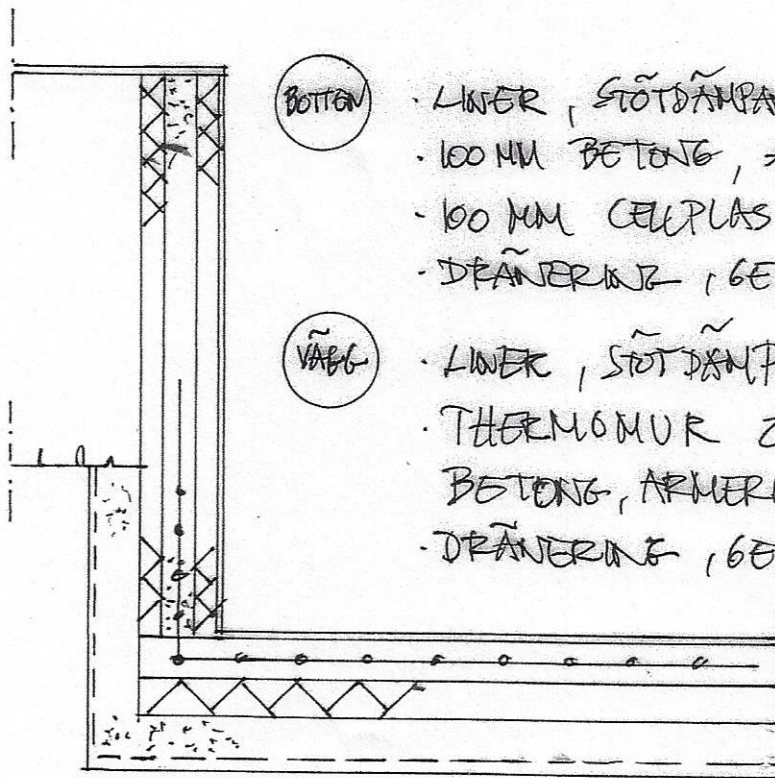 BOTTEN
· LINER, STÖTDÄMPA
· 100 MM BETONG,
· 100 MM CELLPLAS
· DRÄNERING, GE
VÄGG
· LINER, STÖTDÄMP
· THERMOMUR 2
BETONG, ARMER
· DRÄNERING, GE